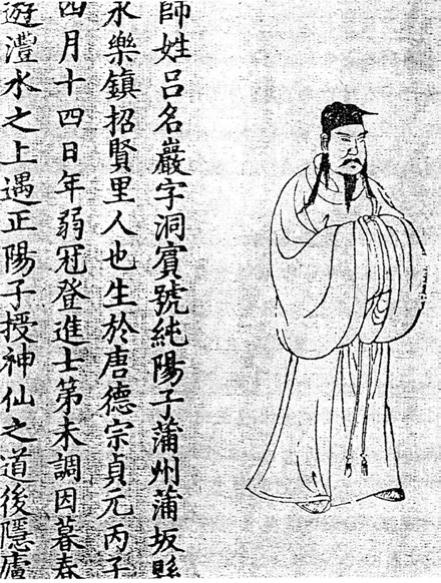 師姓呂名巖字洞賓號純陽子蒲州蒲坂縣
永樂鎮招賢里人也生於唐德宗貞元丙子
四月十四日年弱冠登進士第未調因暮春
遊澧水之上遇正陽子授神仙之道後隱廬